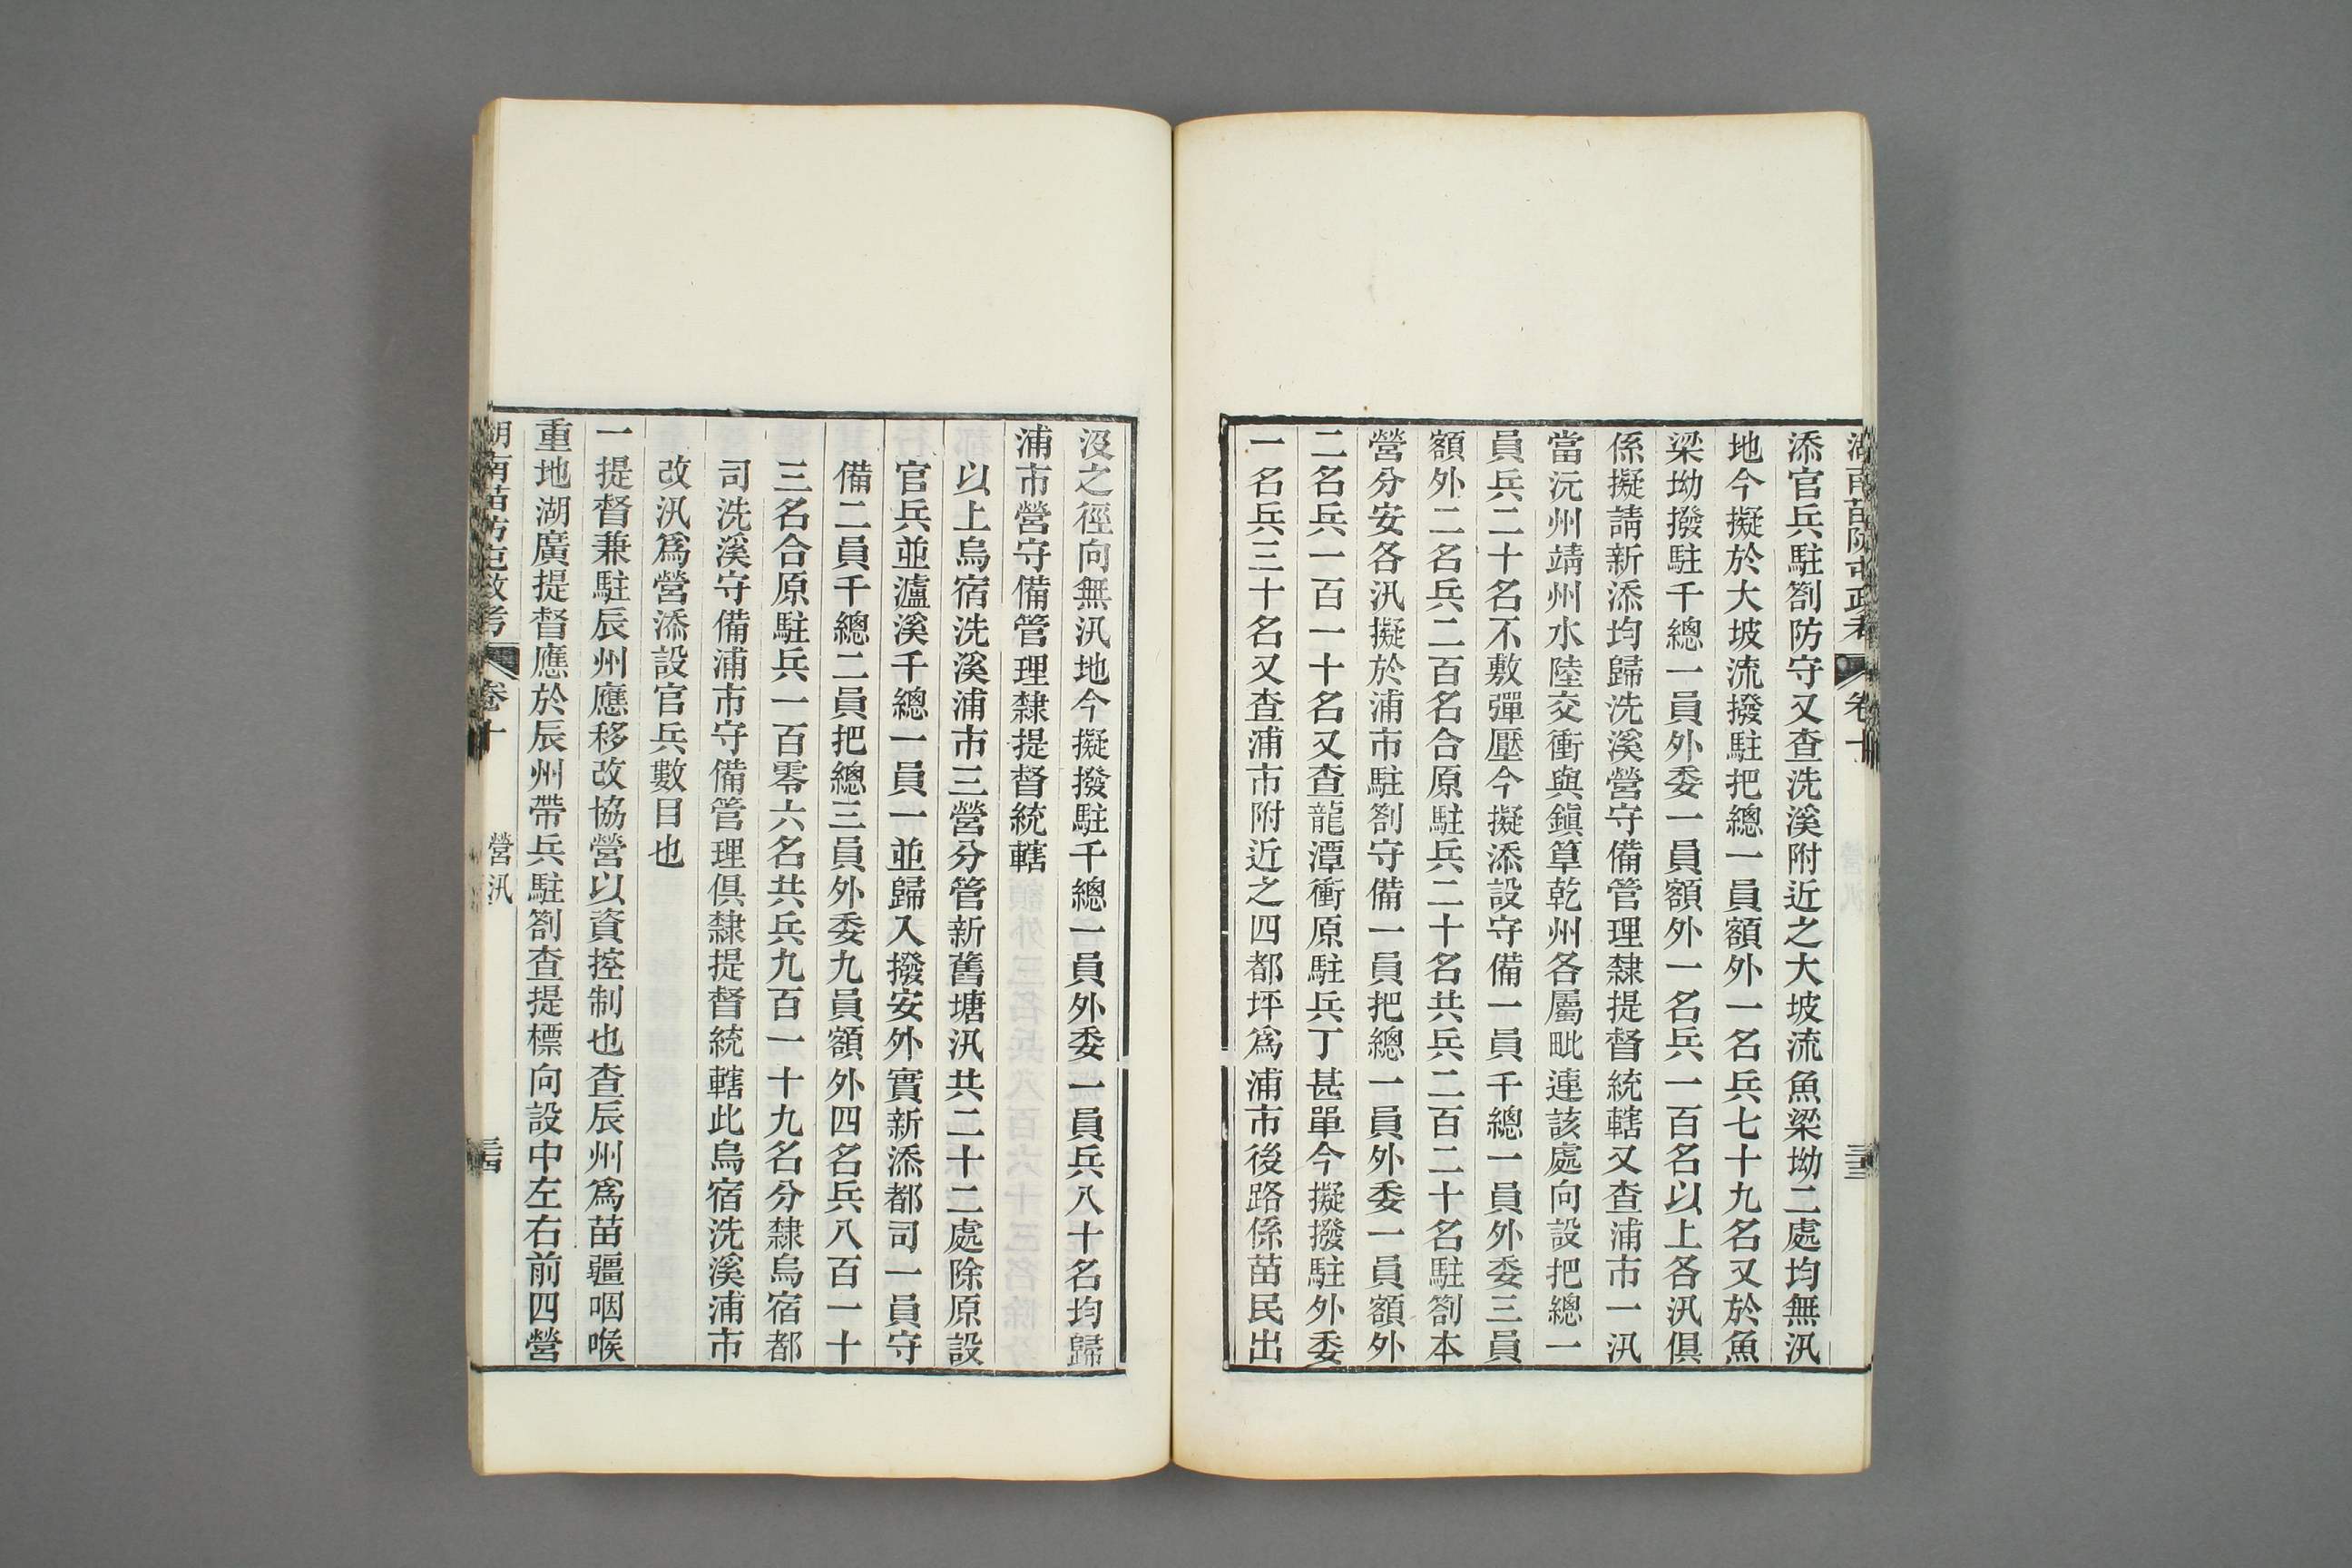 湖南苗防屯政考 卷十 三十三
添官兵駐劄防守又查洗溪附近之大坡流魚梁坳二處均無汛
地今擬於大坡流撥駐把總一員額外一名兵七十九名又於魚
梁坳撥駐千總一員外委一員額外一名兵一百名以上各汛俱
係擬請新添均歸洗溪營守備管理隸提督統轄又查浦市一汛
當沅州靖州水陸交衝與鎭筸乾州各屬毗連該處向設把總一
員兵二十名不敷彈壓今擬添設守備一員千總一員外委三員
額外二名兵二百名合原駐兵二十名共兵二百二十名駐劄本
營分安各汛擬於浦市駐劄守備一員把總一員外委一員額外
二名兵一百一十名又查龍潭衝原駐兵丁甚單今擬撥駐外委
一名兵三十名又查浦市附近之四都坪爲浦市後路係苗民出
沒之徑向無汛地今擬撥駐千總一員外委一員兵八十名均歸
浦市營守備管理隸提督統轄
以上烏宿洗溪浦市三營分管新舊塘汛共二十二處除原設
官兵並瀘溪千總一員一並歸入撥安外實新添都司一員守
備二員千總二員把總三員外委九員額外四名兵八百一十
三名合原駐兵一百零六名共兵九百一十九名分隸烏宿都
司洗溪守備浦市守備管理俱隸提督統轄此烏宿洗溪浦市
改汛爲營添設官兵數目也
一提督兼駐辰州應移改協營以資控制也查辰州爲苗疆咽喉
重地湖廣提督應於辰州帶兵駐劄查提標向設中左右前四營
湖南苗防屯政考 卷十 營汛 三十四